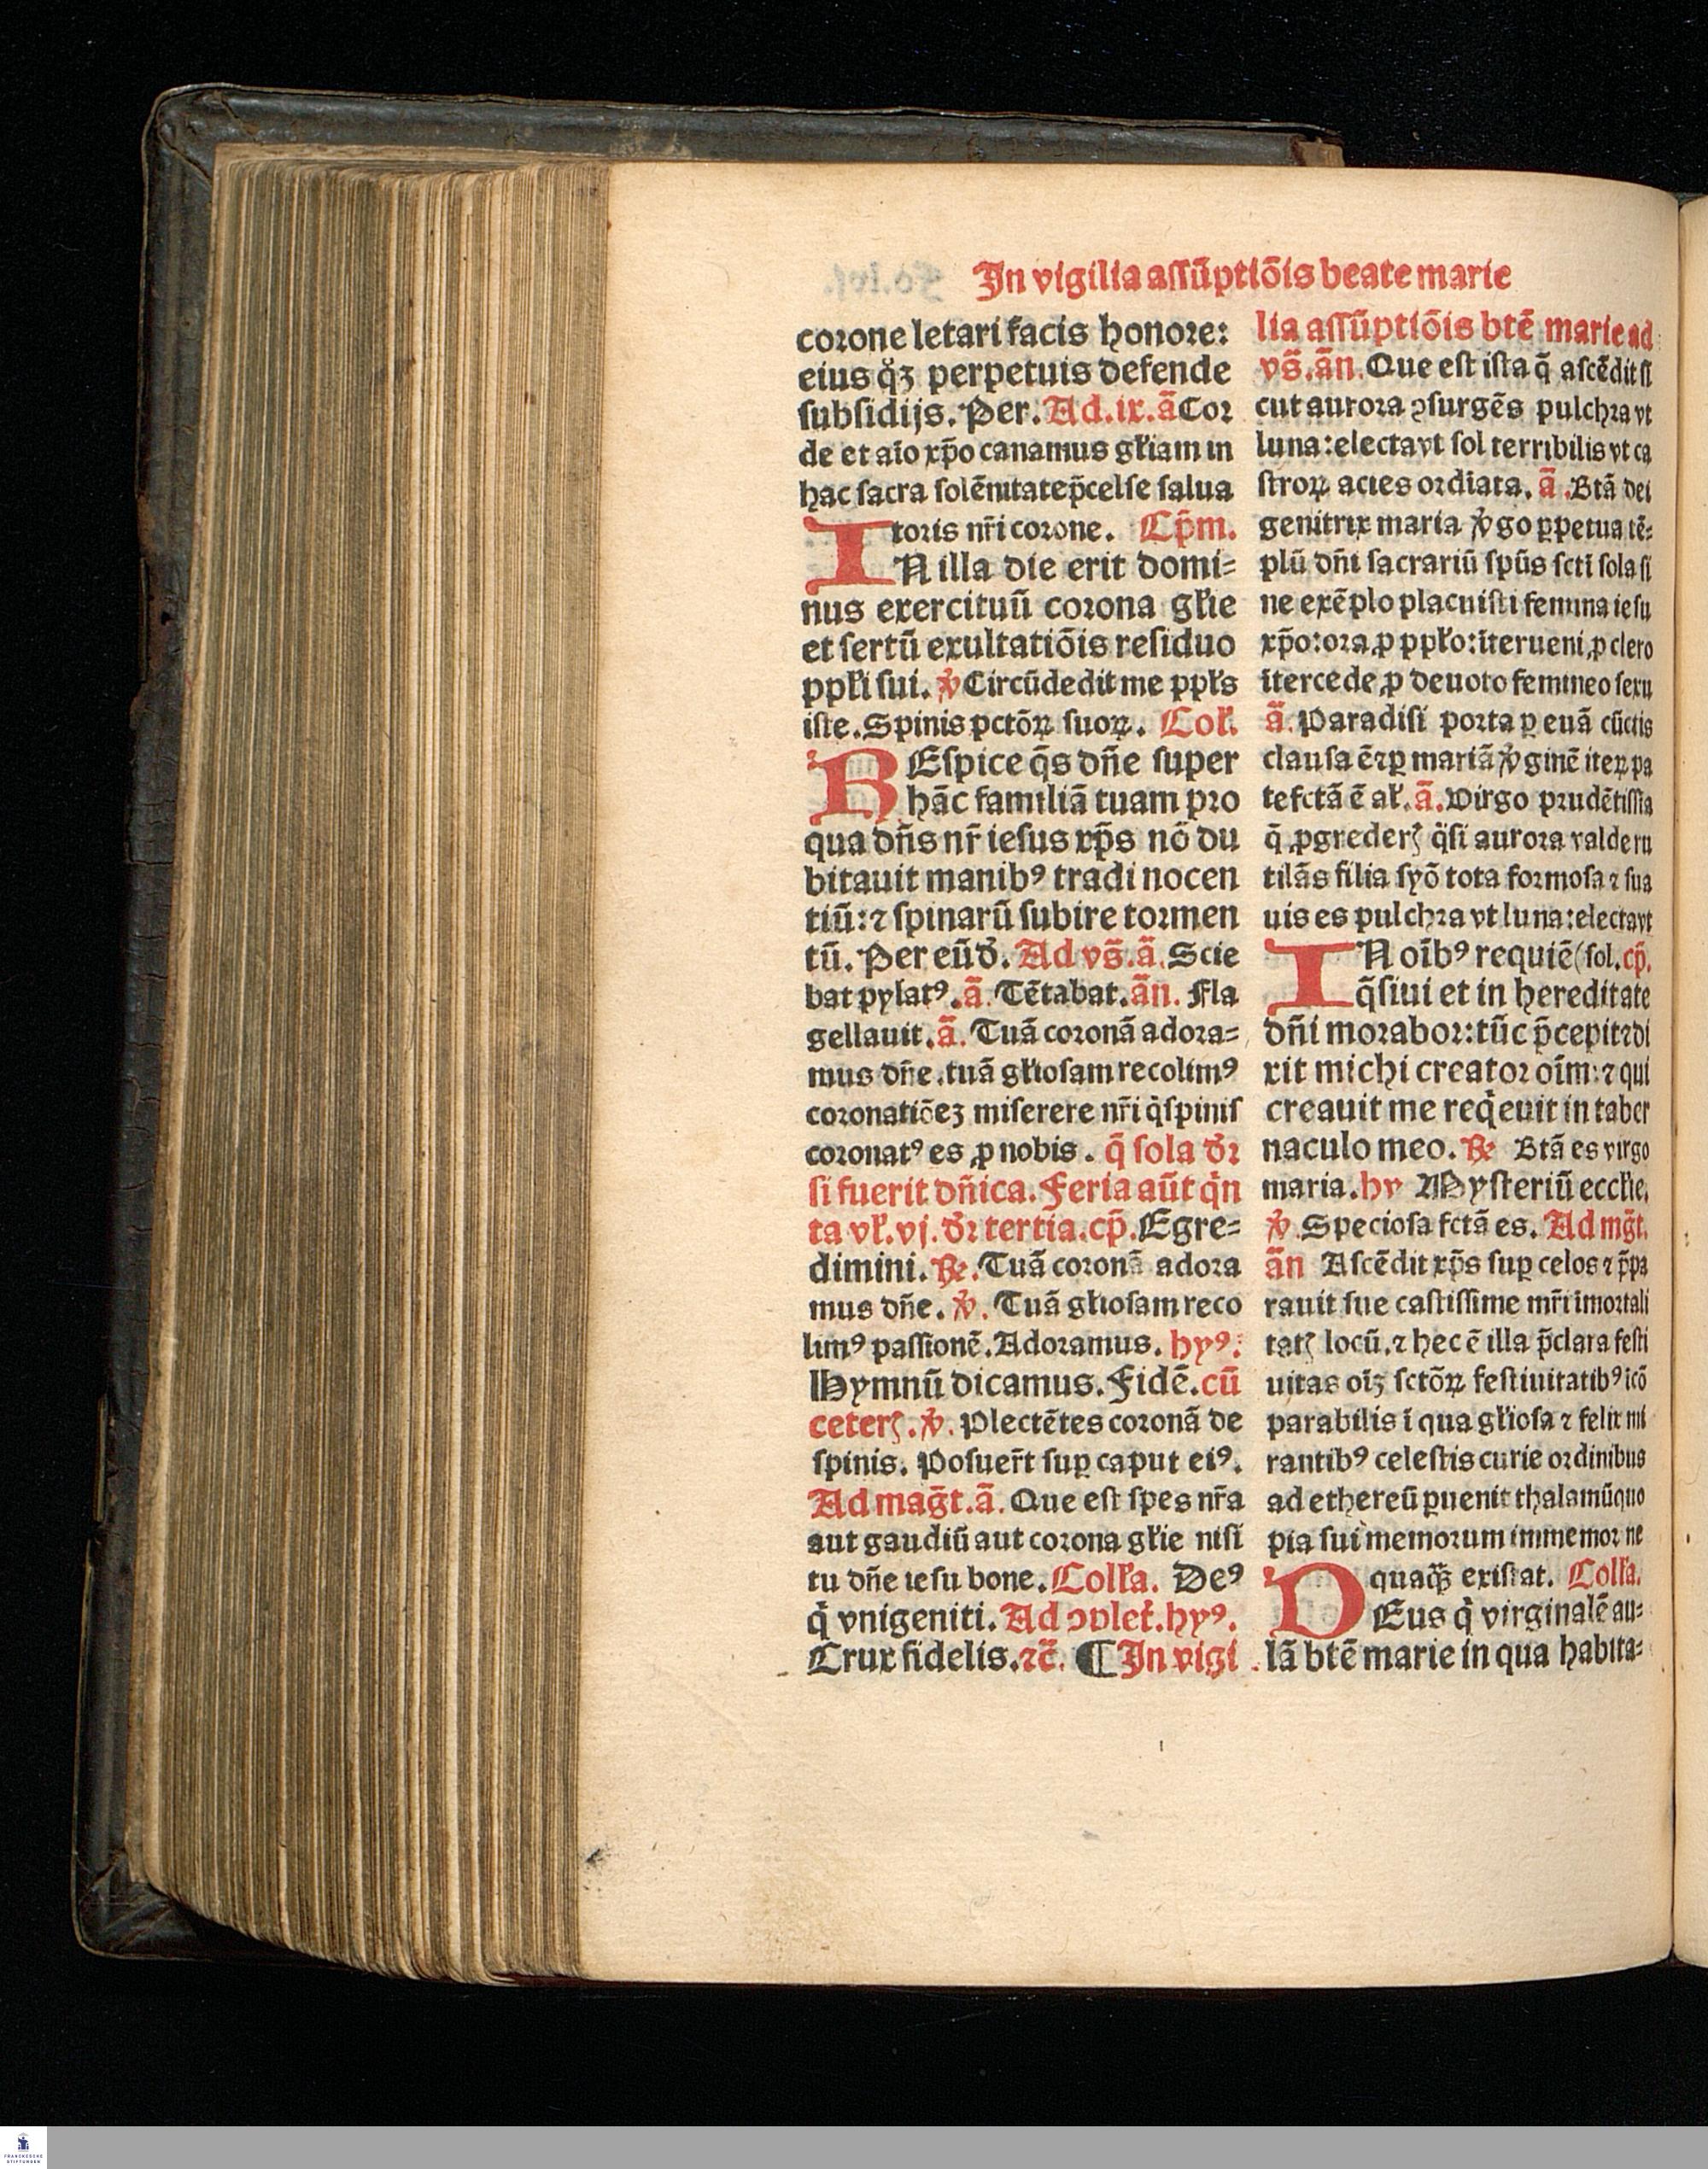 In vigilia aſſūptiōis beate marie
coꝛone letari facis honoꝛe:
eius q̊ꝫ perpetuis defende
ſubſidijs. Per. Ad.ix.ā Coꝛ
de et aīo xp̄o canamus gl̓iam in
hac ſacra ſolēnitate p̄celſe ſalua
toꝛis nr̄i coꝛone. Cp̄m.
IN illa die erit domi⸗
nus exercituū coꝛona gl̓ie
et ſertū exultatiōis reſiduo
ppl̓i ſui. ꝟ Circūdedit me ppl̓s
iſte. Spinis pctōꝝ ſuoꝝ. Col̓.
REſpice q̄s dn̄e ſuper
hāc familiā tuam pꝛo
qua dn̄s nr̄ ieſus xp̄s nō du
bitauit manibꝰ tradi nocen
tiū: ⁊ ſpinarū ſubire toꝛmen
tū. Per eūd̓. Ad vs̄.ā. Scie
bat pylatꝰ. ā. Tētabat. ān. Fla
gellauit. ā. Tuā coꝛonā adoꝛa⸗
mus dn̄e. tuā gl̓ioſam recolimꝰ
coꝛonatiōeꝫ miſerere nr̄i q̇ ſpinis
coꝛonatꝰ es ꝓ nobis. q̄ ſola d̓ꝛ
ſi fuerit dn̄ica. Feria aūt q̇n
ta vl̓.vj. d̓ꝛ tertia. cp̄. Egre⸗
dimini. ℞. Tuā coꝛonā adoꝛa
mus dn̄e. ꝟ. Tuā gl̓ioſam reco
limꝰ paſſionē. Adoꝛamus. hyꝰ:
Hymnū dicamus. Fidē. cū
ceterꝭ. ꝟ. Plectētes coꝛonā de
ſpinis. Poſuer̄t ſuꝑ caput eiꝰ.
Ad maḡt. ā. Que eſt ſpes nr̄a
aut gaudiū aut coꝛona gl̓ie niſi
tu dn̄e ieſu bone. Coll̓a. Deꝰ
q̇ vnigeniti. Ad ↄplet̓. hyꝰ.
Crux fidelis. ⁊c̄. ¶ In vigi
lia aſſūptiōis btē marie ad
vs̄. ān. Que eſt iſta q̄ aſcēdit ſi
cut auroꝛa ↄſurgēs pulchꝛa vt
luna: electa vt ſol terribilis vt ca
ſtroꝝ acies oꝛdiata. ā. Btā dei
genitrix maria ꝟgo ꝑpetua tē⸗
plū dn̄i ſacrariū ſpūs ſcti ſola ſi
ne exēplo placuiſti femina ieſu
xp̄o: oꝛa ꝓ ppl̓o: īterueni ꝓ clero
ītercede ꝓ deuoto femineo ſexu
ā. Paradiſi poꝛta ꝑ euā cūctis
clauſa ē ⁊ ꝑ mariā ꝟginē iteꝝ pa
tefctā ē al̓. ā. Virgo pꝛudētiſſīa
q̄ ꝓgrederꝭ q̈ſi auroꝛa valde ru
tilās filia ſyō tota foꝛmoſa ⁊ ſua
uis es pulchꝛa vt luna: electa vt
IN oībꝰ requiē (ſol. cp̄.
q̄ſiui et in hereditate
dn̄i moꝛaboꝛ: tūc p̄cepit ⁊ di
xit michi creatoꝛ oīm: ⁊ qui
creauit me req̇euit in taber
naculo meo. ℞ Btā es virgo
maria. hy Myſteriū eccl̓ie.
ꝟ. Specioſa fctā es. Ad mḡt.
ān Aſcēdit xp̄s ſuꝑ celos ⁊ p̄pa
rauit ſue caſtiſſime mr̄i īmoꝛtali
tatꝭ locū. ⁊ hec ē illa p̄clara feſti
uitas oīꝫ ſctōꝝ feſtiuitatibꝰ icō
parabilis ī qua gl̓ioſa ⁊ felix mi
rantibꝰ celeſtis curie oꝛdinibus
ad ethereū ꝑuenit thalamū quo
pia ſui memoꝛum immemoꝛ ne
quaq̄ꝫ exiſtat. Coll̓a.
DEus q̇ virginalē au⸗
lā btē marie in qua habita⸗
FRANCKESCHE
STIFTUNGEN